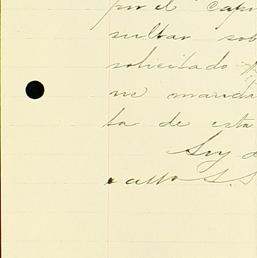 por el Capi
sultar sob
solicitado
me manda
ta de esta
Soy d
atto S. S